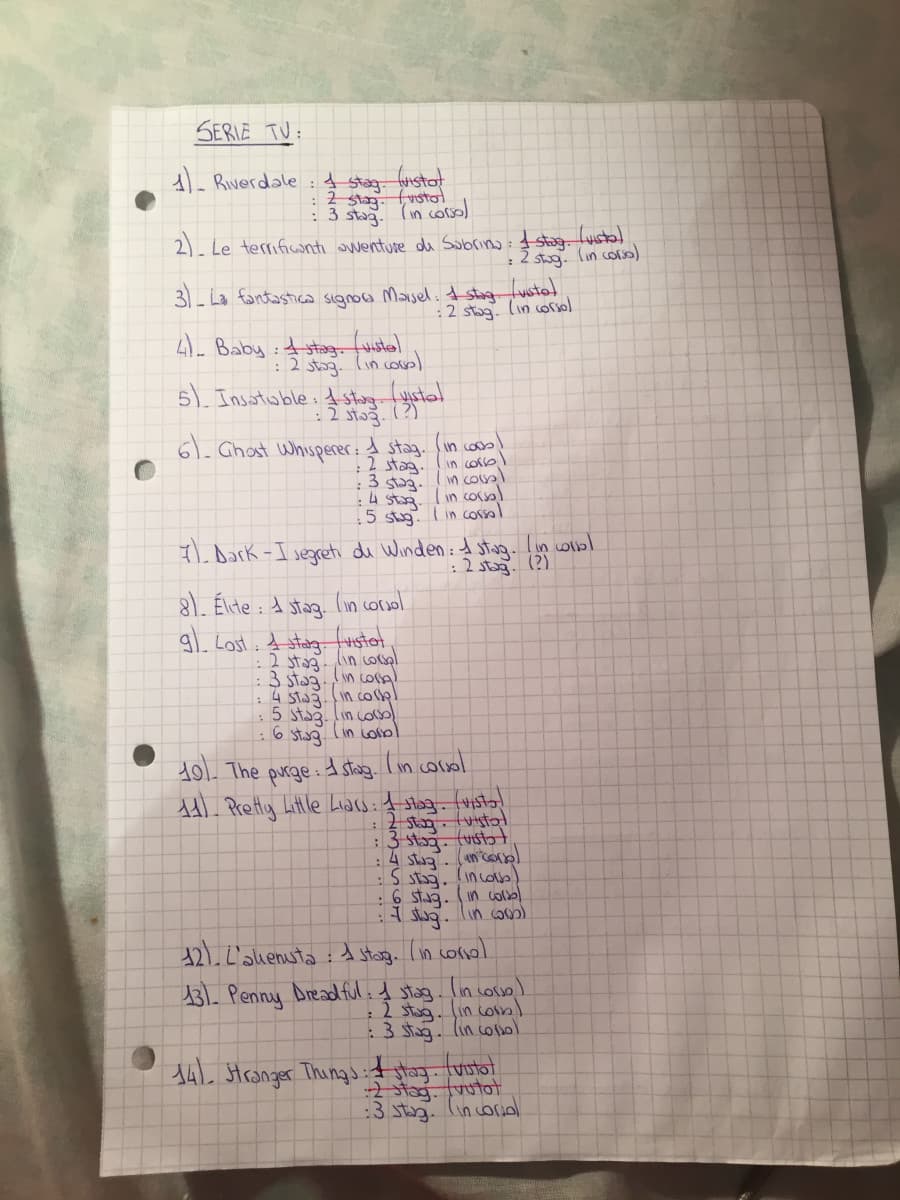 SERIE TV:
1)_ Riverdale : 1 stag. (visto)
: 2 stag. (visto)
: 3 stag. (in corso)
2)_ Le terrificanti avventure di Sabrina : 1 stag. (visto)
: 2 stag. (in corso)
3)_ La fantastica signora Maisel : 1 stag. (visto)
: 2 stag. (in corso)
4)_ Baby : 1 stag. (visto)
: 2 stag. (in corso)
5)_ Insatiable : 1 stag. (visto)
: 2 stag. (?)
6)_ Ghost Whisperer : 1 stag. (in corso)
: 2 stag. (in corso)
: 3 stag. (in corso)
: 4 stag. (in corso)
: 5 stag. (in corso)
7)_ Dark - I segreti di Winden : 1 stag. (in corso)
: 2 stag. (?)
8)_ Élite : 1 stag. (in corso)
9)_ Lost : 1 stag. (visto)
: 2 stag. (in corso)
: 3 stag. (in corso)
: 4 stag. (in corso)
: 5 stag. (in corso)
: 6 stag. (in corso)
10)_ The purge : 1 stag. (in corso)
11)_ Pretty Little Liars : 1 stag. (visto)
: 2 stag. (visto)
: 3 stag. (visto)
: 4 stag. (in corso)
: 5 stag. (in corso)
: 6 stag. (in corso)
: 7 stag. (in corso)
12)_ L'alienista : 1 stag. (in corso)
13)_ Penny Dreadful : 1 stag. (in corso)
: 2 stag. (in corso)
: 3 stag. (in corso)
14)_ Stranger Things : 1 stag. (visto)
: 2 stag. (visto)
: 3 stag. (in corso)